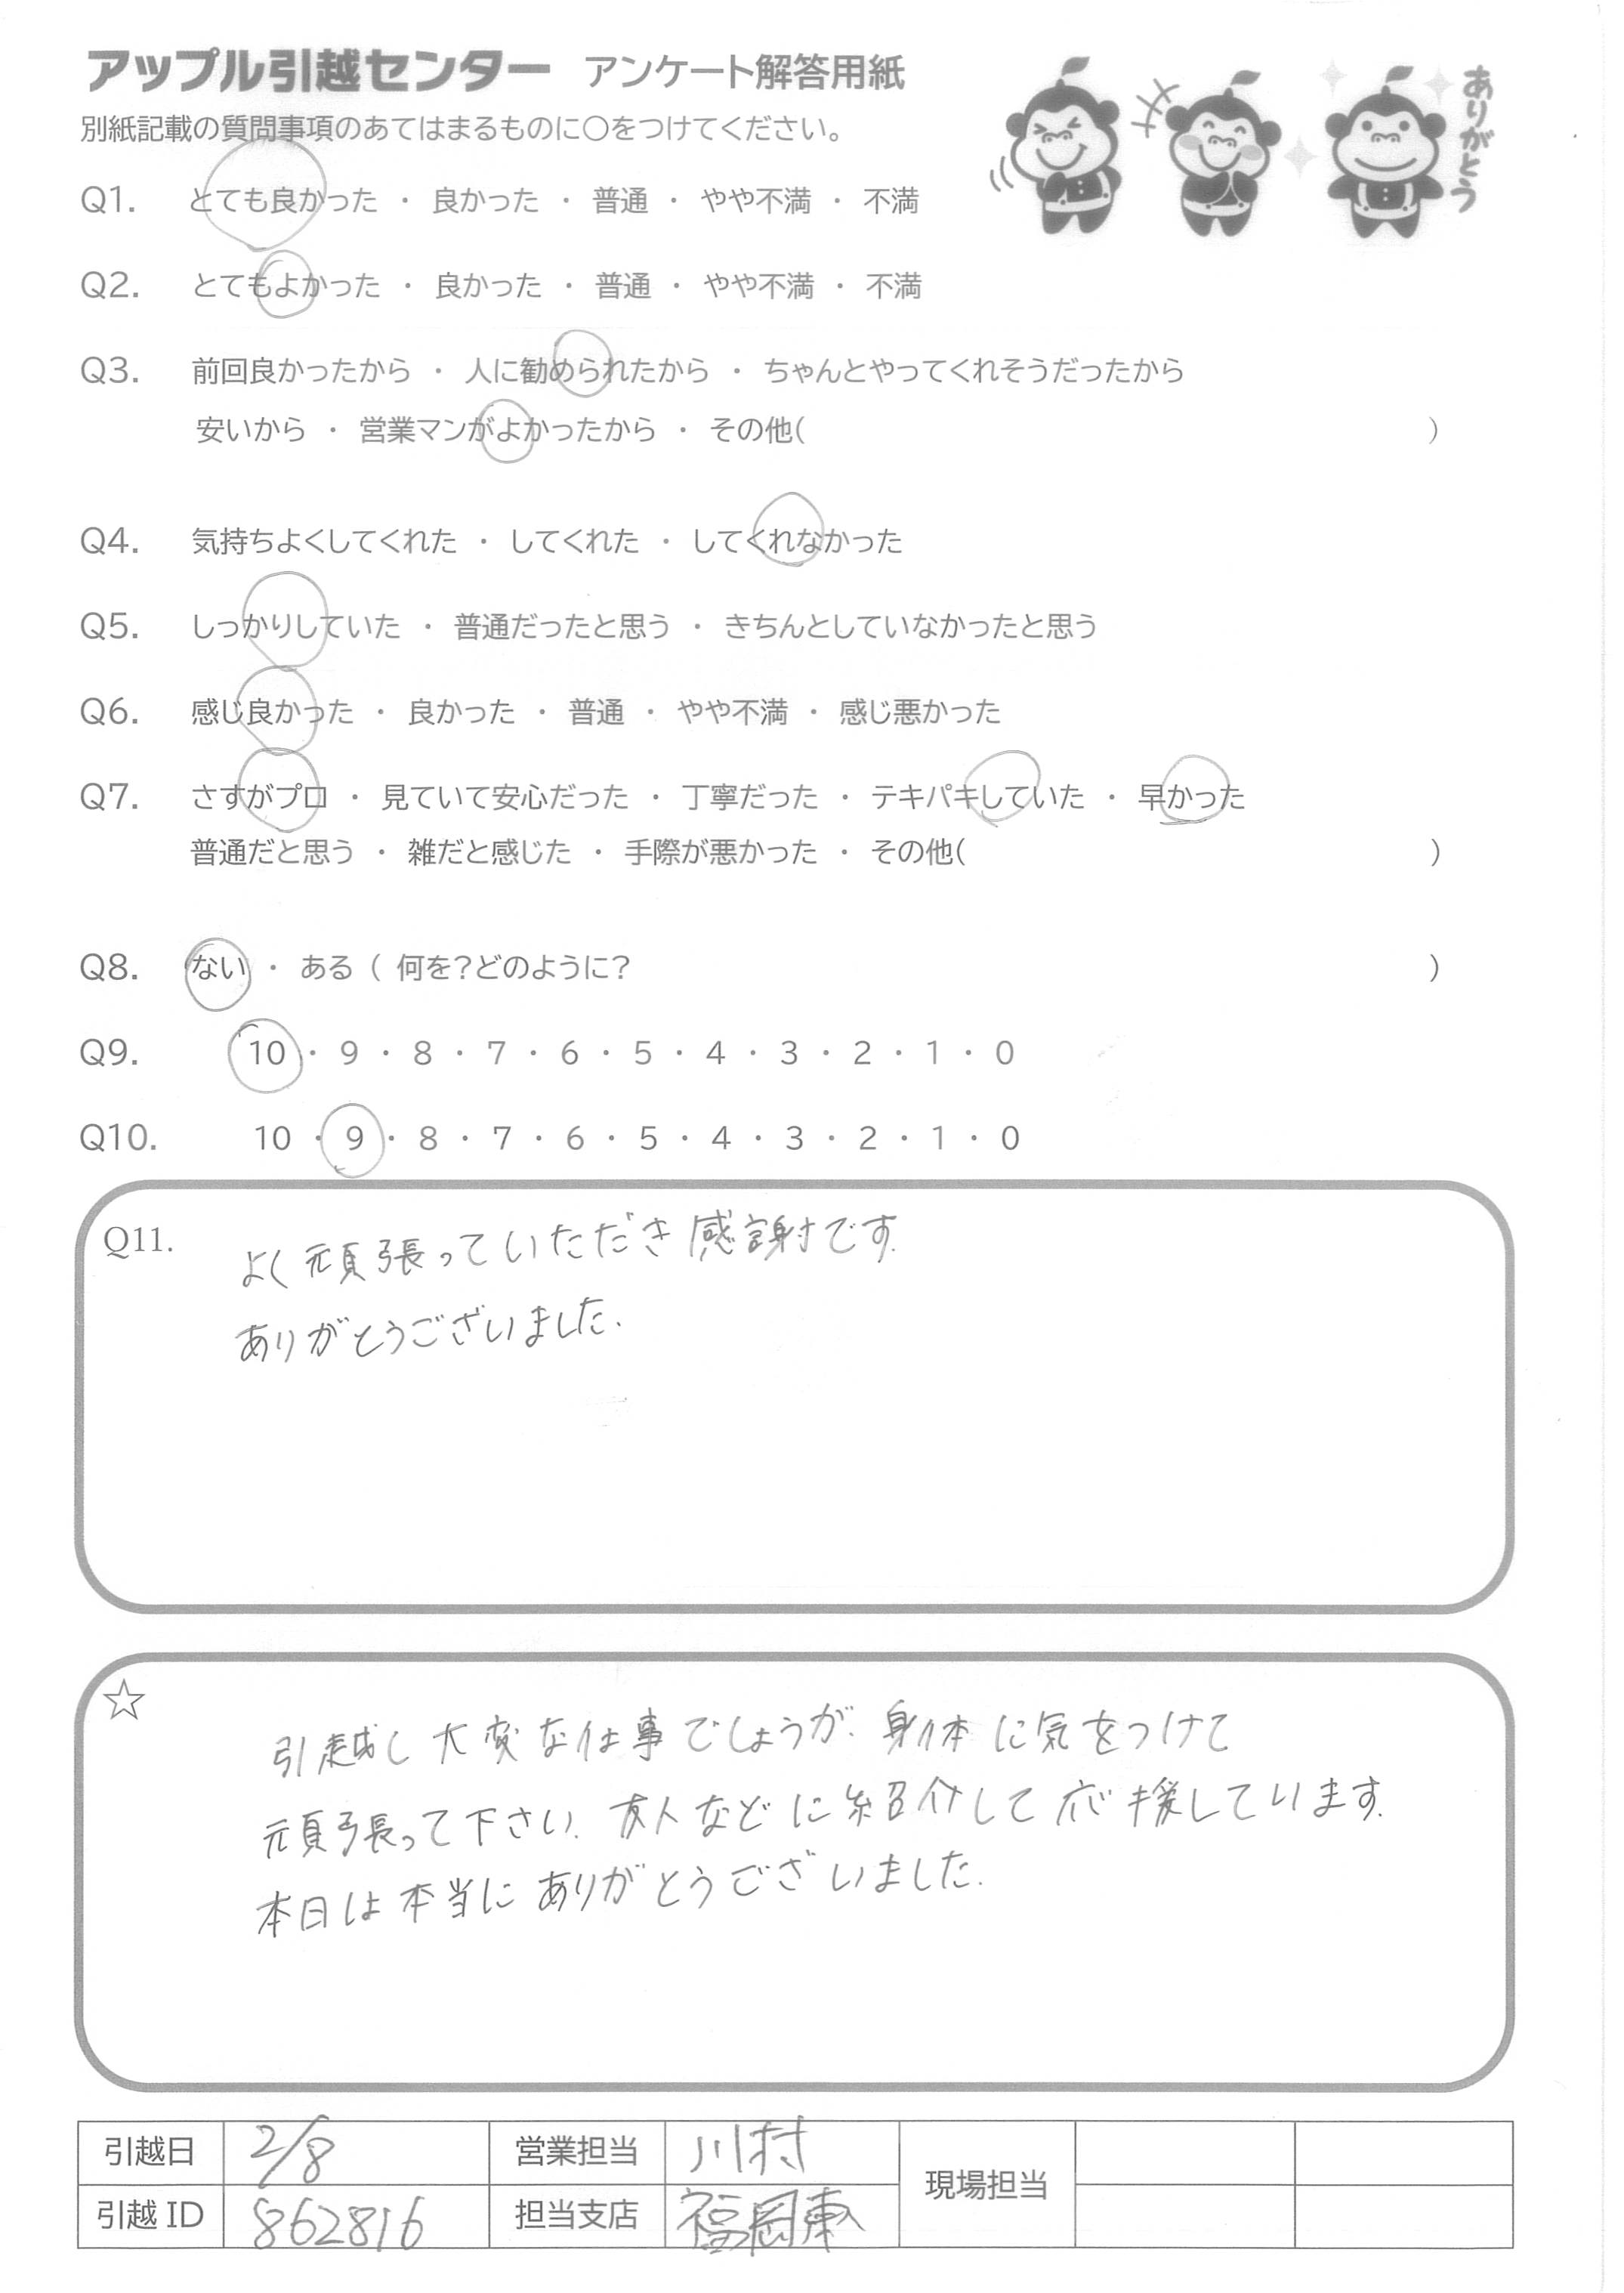 アップル引越センター アンケート解答用紙
ありがとう
別紙記載の質問事項のあてはまるものに〇をつけてください。
Q1. とても良かった ・ 良かった ・ 普通 ・ やや不満 ・ 不満
Q2. とてもよかった ・ 良かった ・ 普通 ・ やや不満 ・ 不満
Q3. 前回良かったから ・ 人に勧められたから ・ ちゃんとやってくれそうだったから
安いから ・ 営業マンがよかったから ・ その他( )
Q4. 気持ちよくしてくれた ・ してくれた ・ してくれなかった
Q5. しっかりしていた ・ 普通だったと思う ・ きちんとしていなかったと思う
Q6. 感じ良かった ・ 良かった ・ 普通 ・ やや不満 ・ 感じ悪かった
Q7. さすがプロ ・ 見ていて安心だった ・ 丁寧だった ・ テキパキしていた ・ 早かった
普通だと思う ・ 雑だと感じた ・ 手際が悪かった ・ その他( )
Q8. ない ・ ある ( 何を?どのように? )
Q9. 10 ・ 9 ・ 8 ・ 7 ・ 6 ・ 5 ・ 4 ・ 3 ・ 2 ・ 1 ・ 0
Q10. 10 ・ 9 ・ 8 ・ 7 ・ 6 ・ 5 ・ 4 ・ 3 ・ 2 ・ 1 ・ 0
Q11. よく頑張っていただき感謝です.
ありがとうございました.
☆
引越し大変な仕事でしょうが、身体に気をつけて
頑張って下さい. 友人などに紹介して応援しています.
本日は本当にありがとうございました.
引越日 2/8 営業担当 川村 現場担当
引越ID 862816 担当支店 福岡東